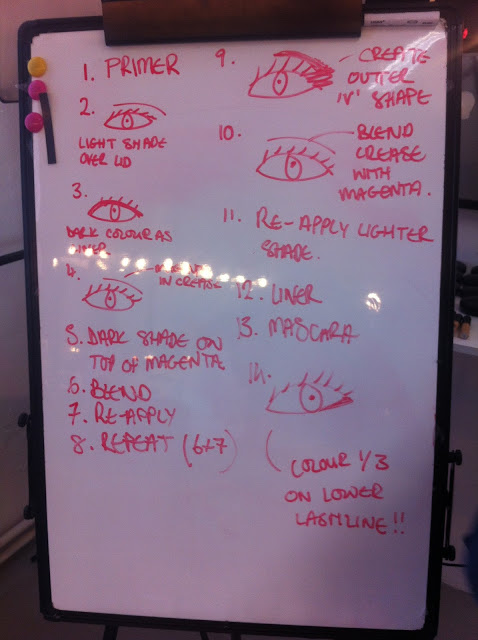 1. PRIMER
2.
LIGHT SHADE
OVER LID
3.
DARK COLOUR AS
LINER
4.
MAGENTA
IN CREASE
5. DARK SHADE ON
TOP OF MAGENTA
6. BLEND
7. RE-APPLY
8. REPEAT (6+7)
9.
CREATE
OUTTER
'V' SHAPE
10.
BLEND
CREASE
WITH
MAGENTA.
11. RE-APPLY LIGHTER
SHADE.
12. LINER
13. MASCARA
14.
COLOUR 1/3
ON LOWER
LASHLINE!!